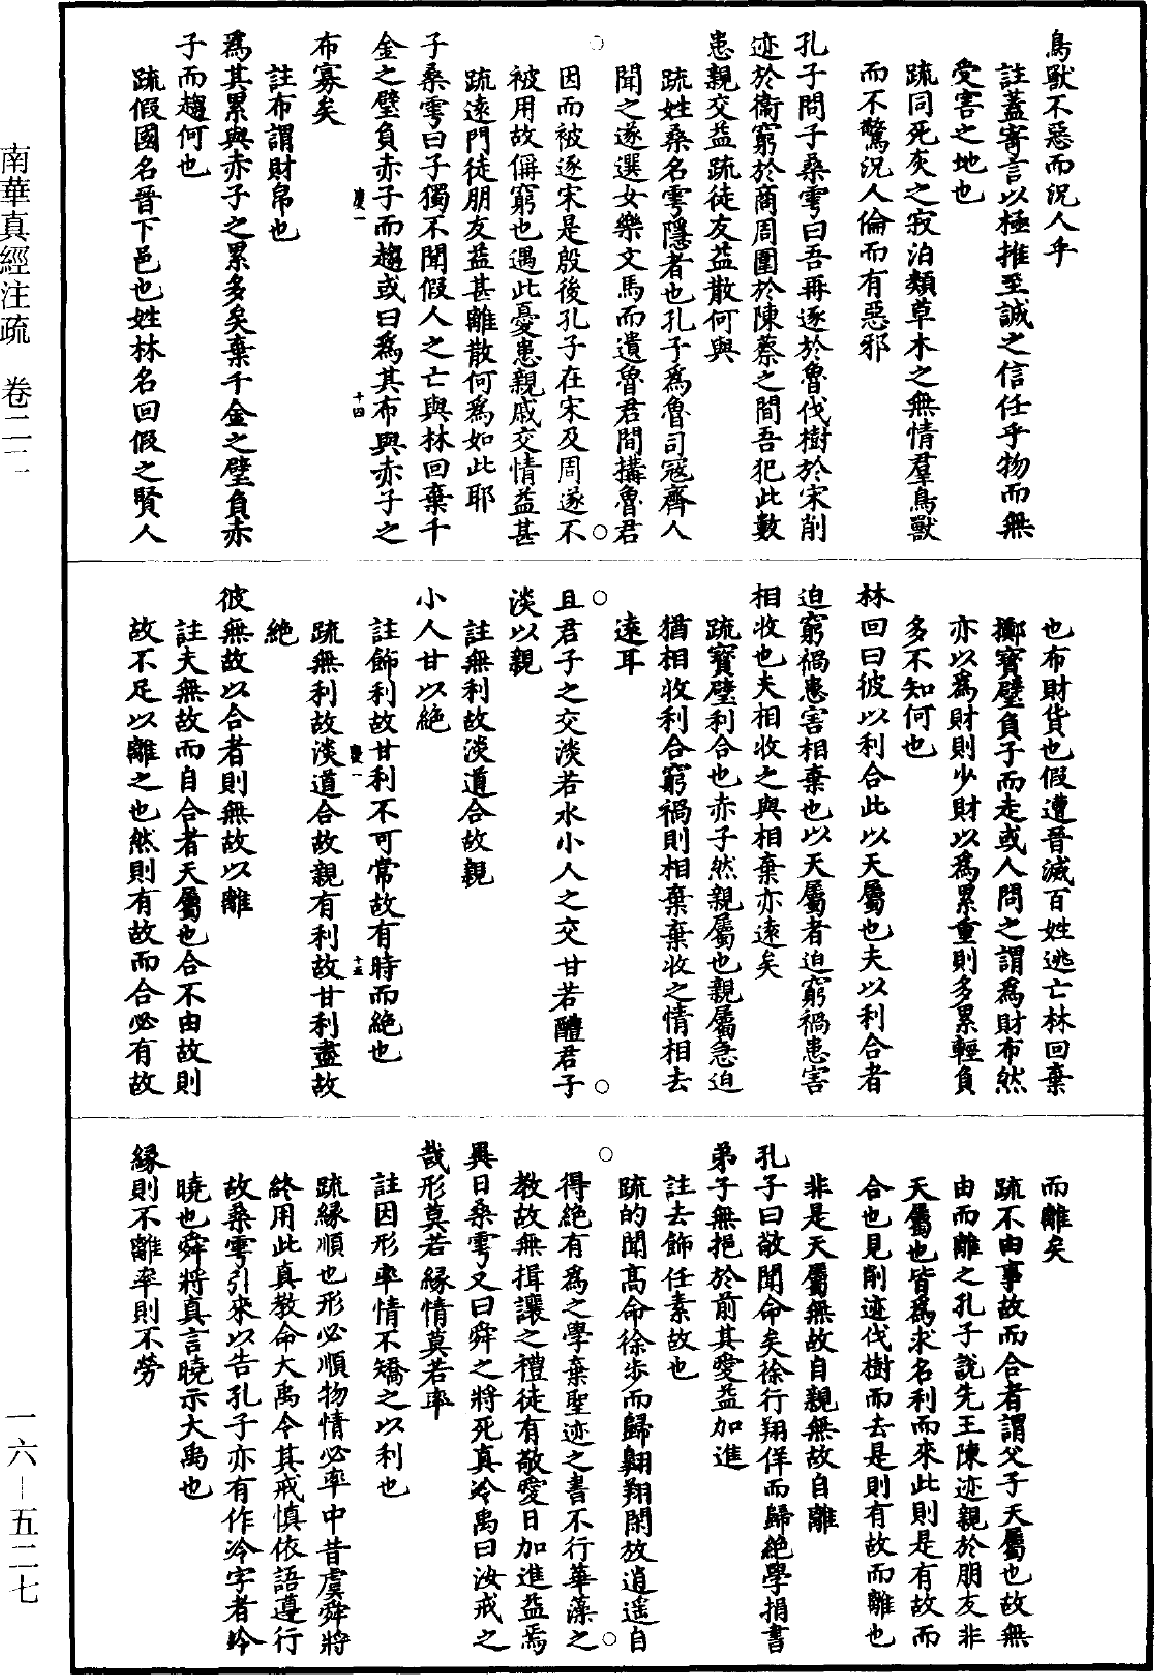 鳥獸不惡而況人乎
註蓋寄言以極推至誠之信任乎物而無
受害之地也
疏同死灰之寂泊類草木之無情羣鳥獸
而不驚況人倫而有惡邪
孔子問子桑雽曰吾再逐於魯伐樹於宋削
迹於衞窮於商周圍於陳蔡之間吾犯此數
患親交益疏徒友益散何與
疏姓桑名雽隱者也孔子爲魯司寇齊人
聞之遂選女樂文馬而遺魯君間搆魯君
因而被逐宋是殷後孔子在宋及周遂不
被用故偁窮也遇此憂患親戚交情益甚
疏遠門徒朋友益甚離散何爲如此耶
子桑雽曰子獨不聞假人之亡與林回棄千
金之璧負赤子而趨或曰爲其布與赤子之
布寡矣
註布謂財帛也
爲其累與赤子之累多矣棄千金之璧負赤
子而趨何也
疏假國名晉下邑也姓林名回假之賢人
也布財貨也假遭晉滅百姓逃亡林回棄
擲寶璧負子而走或人問之謂爲財布然
亦以爲財則少財以爲累重則多累輕負
多不知何也
林回曰彼以利合此以天屬也夫以利合者
迫窮禍患害相棄也以天屬者迫窮禍患害
相收也夫相收之與相棄亦遠矣
疏寶璧利合也赤子然親屬也親屬急迫
猶相收利合窮禍則相棄棄收之情相去
遠耳
且君子之交淡若水小人之交甘若醴君子
淡以親
註無利故淡道合故親
小人甘以絶
註飾利故甘利不可常故有時而絶也
疏無利故淡道合故親有利故甘利盡故
絶
彼無故以合者則無故以離
註夫無故而自合者天屬也合不由故則
故不足以離之也然則有故而合必有故
而離矣
疏不由事故而合者謂父子天屬也故無
由而離之孔子說先王陳迹親於朋友非
天屬也皆爲求名利而來此則是有故而
合也見削迹伐樹而去是則有故而離也
非是天屬無故自親無故自離
孔子曰敬聞命矣徐行翔佯而歸絶學捐書
弟子無挹於前其愛益加進
註去飾任素故也
疏的聞高命徐步而歸翺翔閑放逍遥自
得絶有爲之學棄聖迹之書不行華藻之
教故無揖讓之禮徒有敬愛日加進益焉
異日桑雽又曰舜之將死真泠禹曰汝戒之
哉形莫若緣情莫若率
註因形率情不矯之以利也
疏緣順也形必順物情必率中昔虞舜將
終用此真教命大禹令其戒慎依語遵行
故桑雽引來以告孔子亦有作泠字者㱓
曉也舜將真言曉示大禹也
緣則不離率則不勞
南華真經注疏　卷二二
一六—五二七
慶一
十四
慶一
十五